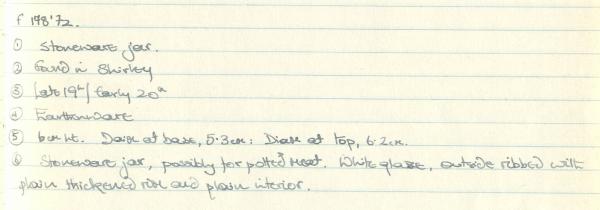 f 178'72.
① Stoneware jar.
② Found in Shirley
③ Late 19th/Early 20th
④ Earthenware
⑤ 6cm ht. Diam at base, 5.3cm: Diam at top, 6.2cm.
⑥ Stoneware jar, possibly for potted meat. White glaze, outside ribbed with
plain thickened rim and plain interior.